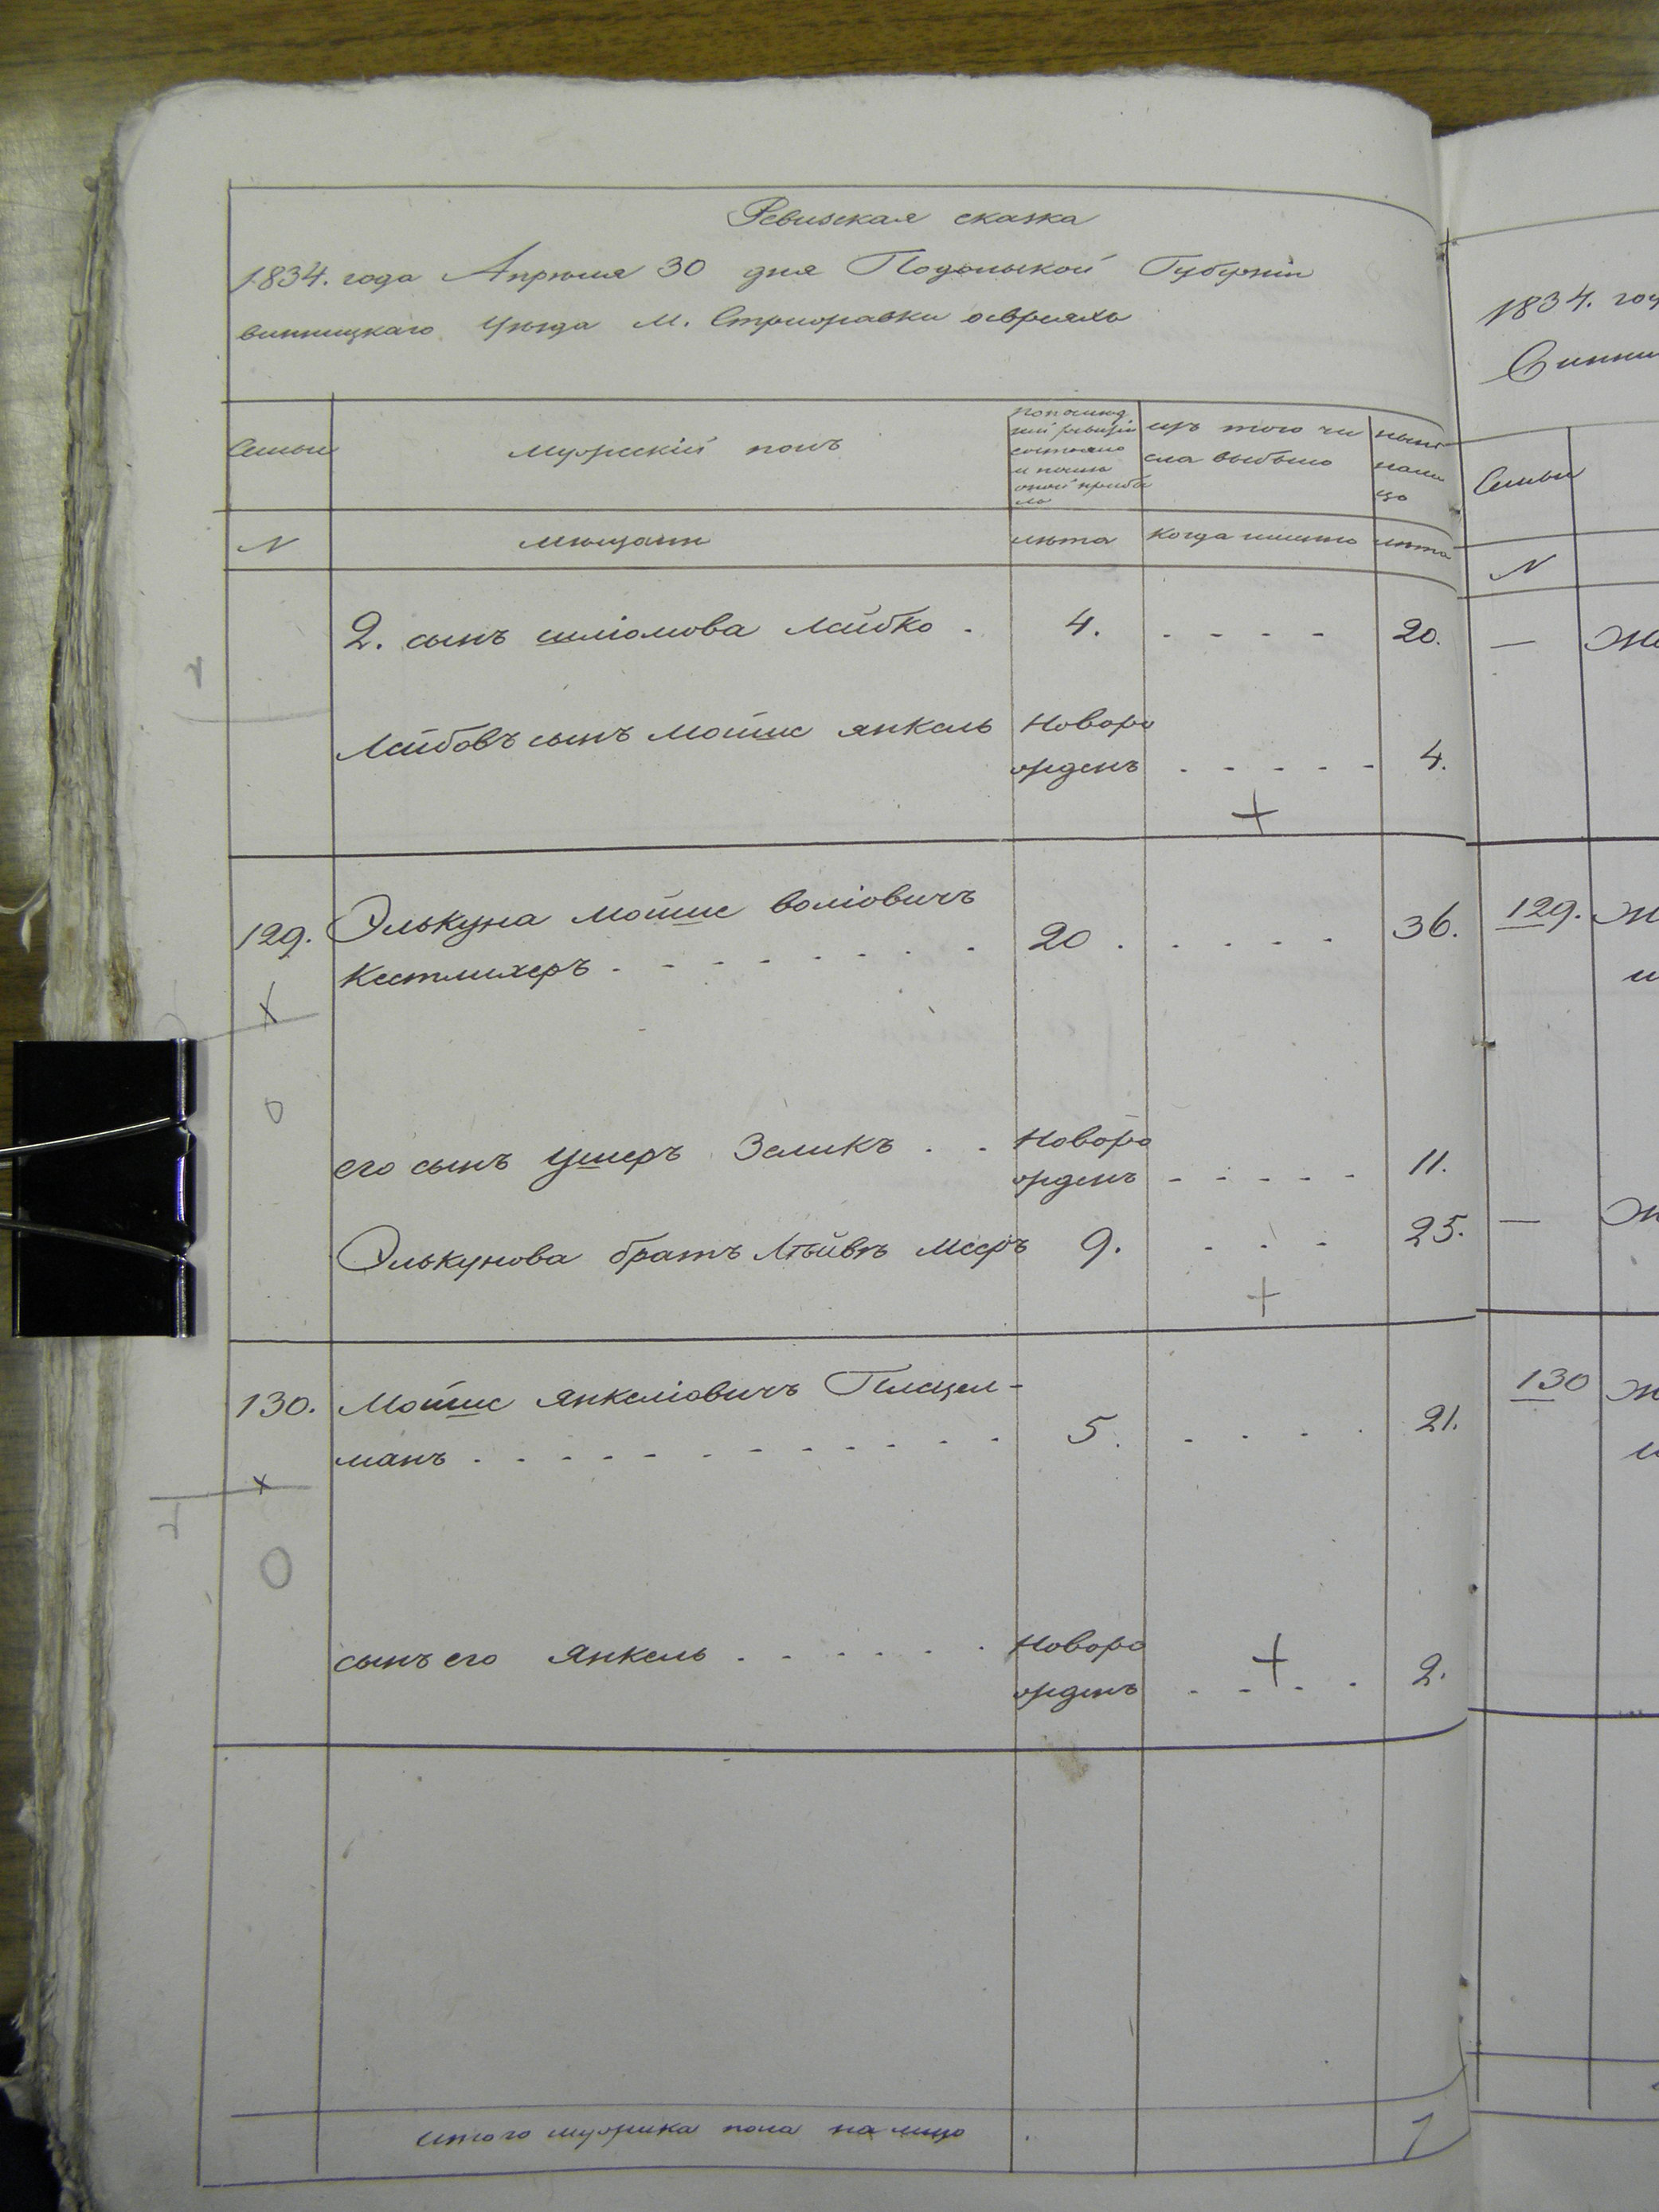 Ревизская сказка
1834. года Апреля 30 дня Подольской Губерніи
винницкаго Уѣзда М. Стрижавки о евреяхъ
Семьи
мужескій полъ
по послѣд
ней ревизіи
состояло
и послѣ
оной прибы
ло
изъ того чи
сла выбыло
нынѣ
нали
цо
N
мѣщане
лѣта
когда именно
лѣта
2. сынъ шліомова Лейбко . 4. - - - - 20.
Лейбовъ сынъ Мошис янкель Новоро
жденъ . - - - - 4.
+
129. Элькуна Мошис воліовичъ
Кестлихеръ . - - - - - - - 20 . . - - - 36.
х
его сынъ Ушеръ Зеликъ . . Новоро
жденъ - - - - - 11.
Элькунова братъ Лейвъ Мееръ 9. - - - 25.
+
130. Мошис янкеліовичъ Гилцел-
манъ . - - - - - - - - - 5. - - - . 21.
х
сынъ его янкель . - - - - . Новоро
жденъ + - - - . 2.
итого мужска пола на лицо . 7
1834. год
Винни
Семьи
N
— Же
129. Ж
и
— Ж
130 Ж
и